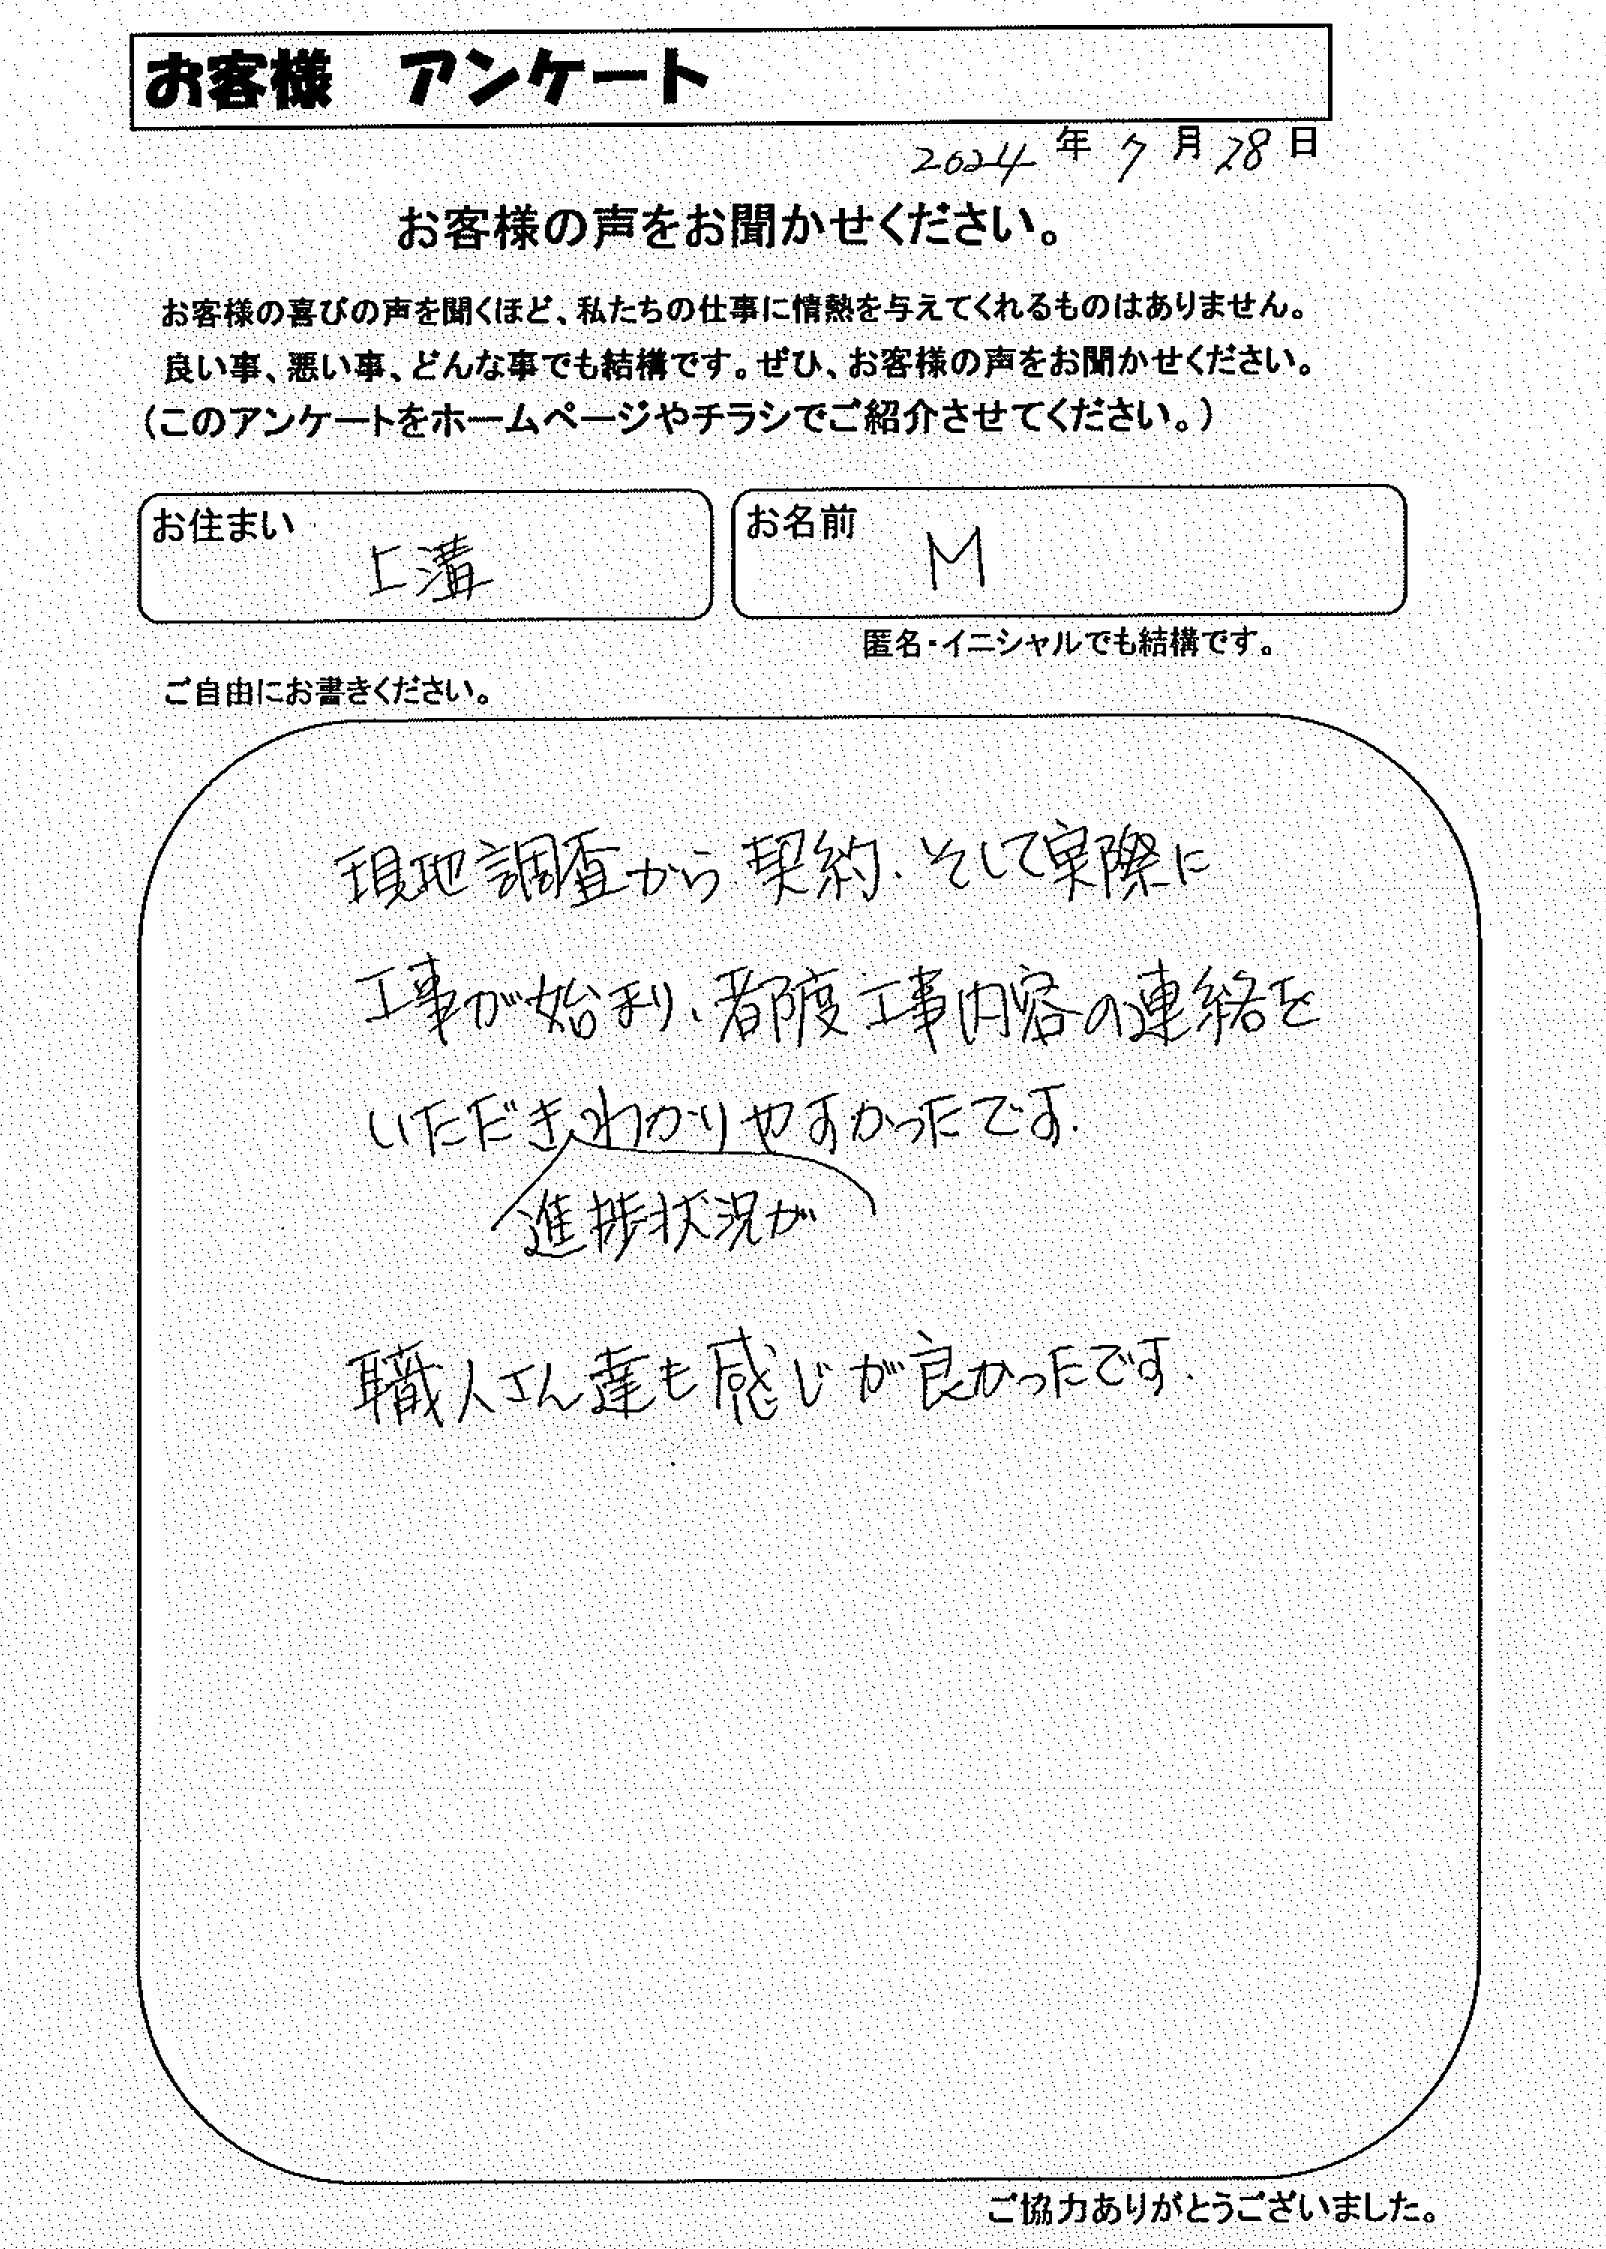 お客様　アンケート
2024年7月28日
お客様の声をお聞かせください。
お客様の喜びの声を聞くほど、私たちの仕事に情熱を与えてくれるものはありません。
良い事、悪い事、どんな事でも結構です。ぜひ、お客様の声をお聞かせください。
（このアンケートをホームページやチラシでご紹介させてください。）
お住まい　上溝
お名前　M
匿名・イニシャルでも結構です。
ご自由にお書きください。
現地調査から契約、そして実際に
工事が始まり、都度工事内容の連絡を
いただきわかりやすかったです.
進捗状況が
職人さん達も感じが良かったです.
ご協力ありがとうございました。